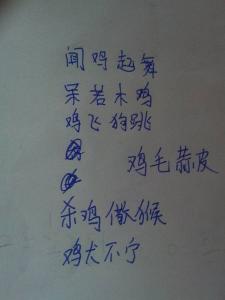 闻鸡起舞
呆若木鸡
鸡飞狗跳
鸡毛蒜皮
杀鸡儆猴
鸡犬不宁